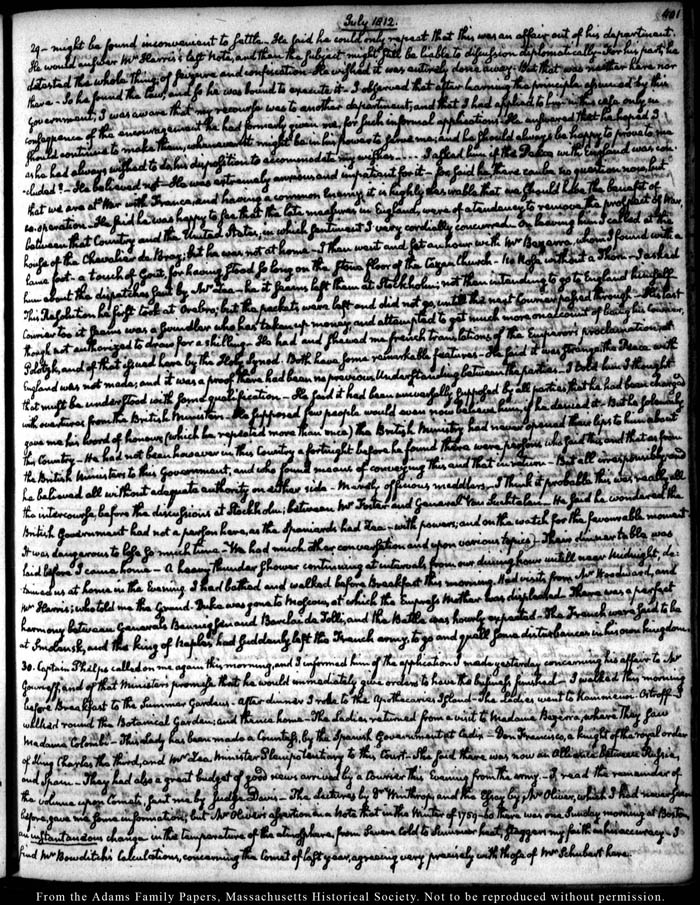 July 1812.
401
29 - might be found inconvenient to settle - He said he could only repeat that this was an affair out of his department.
He would answer Mr Harris's last Note, and then the subject might still be liable to discussion diplomatically - For his part, he
detested the whole thing, of seizure and confiscation - He wished it was entirely done away. But that was neither here nor
there - So he found the Law, and so he was bound to execute it - I observed that after learning the principle assumed by this
Government, I was aware that my recourse was to another department; and that I had applied to him in this case only in
consequence of the encouragement he had formerly given me, for such informal applications - He answered that he hoped I
should continue to make them, whenever it might be in his power to serve me, and he should always be happy to prove to me
as he had always wished to do his disposition to accommodate my wishes .... I asked him if the Peace with England was con-
-cluded? - He believed not - He was extremely anxious and impatient for it - for said he, there can be no question now, but
that we are at War with France, and having a common Enemy, it is highly desirable that we should have the benefit of
co-operation - He said he was happy to see that the late measures in England, were of a tendency to remove the prospect of War,
between that Country and the United States, in which sentiment I very cordially concurred. On leaving him I called at the
house of the Chevalier de Bray; but he was not at home - I then went and sat an hour with Mr Bezerra, whom I found with a
lame foot - a touch of Gout, for having stood so long on the stone floor of the Cazan Church - No Rose without a Thorn - I asked
him about the dispatches sent by Mr Zea - he it seems left them at Stockholm; not then intending to go to England himself
This Resolution he first took at Orebro; but the packets were left and did not go, until the next Courier passed through - His last
Courier too it seems was a Swindler who has taken up money; and attempted to get much more on account of being his Courier,
though not authorized to draw for a shilling - He had and shewed me french translations of the Emperor's proclamation at
Polotzk, and of that issued here by the Holy Synod. Both have some remarkable features - He said it was strange the Peace with
England was not made; and it was a proof there had been no previous Understanding between the parties - I told him I thought
that must be understood with some qualification - He said it had been universally supposed by all parties that he had been charged
with overtures from the British Ministers - He supposed few people would even now believe him, if he denied it - But he solemnly
gave me his word of honour (which he repeated more than once) the British Ministry had never opened their lips to him about
this Country - He had not been however in this Country a fortnight before he found there were persons who said this and that as from
the British Ministers to this Government, and who found means of conveying this and that in return - But all irresponsibly, and
he believed all without adequate authority on either side - Merely officious meddlers - I think it probable this was really all
the intercourse, before the discussions at Stockholm; between Mr Foster and General Van Suchtelen - He said he wondered the
British Government had not a person here, as the Spaniards had Zea - with powers; and on the watch for the favourable moment
It was dangerous to lose so much time - We had much other conversation and upon various topics - The dinner table was
laid before I came home - A heavy thunder shower continuing at intervals from our dining hour untill near Midnight, de-
tained us at home in the Evening. I had bathed and walked before Breakfast this morning. Had visits from Mr Woodward, and
Mr Harris; who told me the Grand-Duke was gone to Moscow, at which the Empress Mother was displeased. There was a perfect
harmony between Generals Bennigsen and Barclai de Tolli, and the Battle was hourly expected - The French were said to be
at Smolensk, and the king of Naples had suddenly left the French army, to go and quell some disturbances in his own kingdom
30. Captain Phelps called on me again this morning, and I informed him of the application I made yesterday concerning his affair to Mr
Gourieff, and of that Minister's promise that he would immediately give orders to have the business finished - I walked this morning
before Breakfast to the Summer Gardens - After dinner I rode to the Apothecaries Island - The Ladies went to Kammenoi-Ostroff - I
walked round the Botanical Garden; and thence home - The Ladies returned from a visit to Madame Bezerra, where they saw
Madame Colombi - This Lady has been made a Countess, by the Spanish Government at Cadiz - Don Francisco, a knight of the royal order
of King Charles the third, and Mr Zea Minister Plenipotentiary to this Court - She said there was now an Alliance between Russia,
and Spain - They had also a great budget of good news arrived by a Courier this Evening from the army - I read the remainder of
the volume upon Comets, sent me by Judge Davis - The Lectures by Dr Winthrop, and the Essay by Mr Oliver, which I had never seen
before, gave me some information; but Mr Oliver's assertion in a Note that in the Winter of 1759-60 there was one Sunday morning at Boston
an instantaneous change in the temperature of the atmosphere, from severe Cold to Summer heat, staggers my faith in his accuracy - I
find Mr Bowditch's Calculations, concerning the Comet of last year, agreeing very precisely with those of Mr Schubert here.
From the Adams Family Papers, Massachusetts Historical Society. Not to be reproduced without permission.